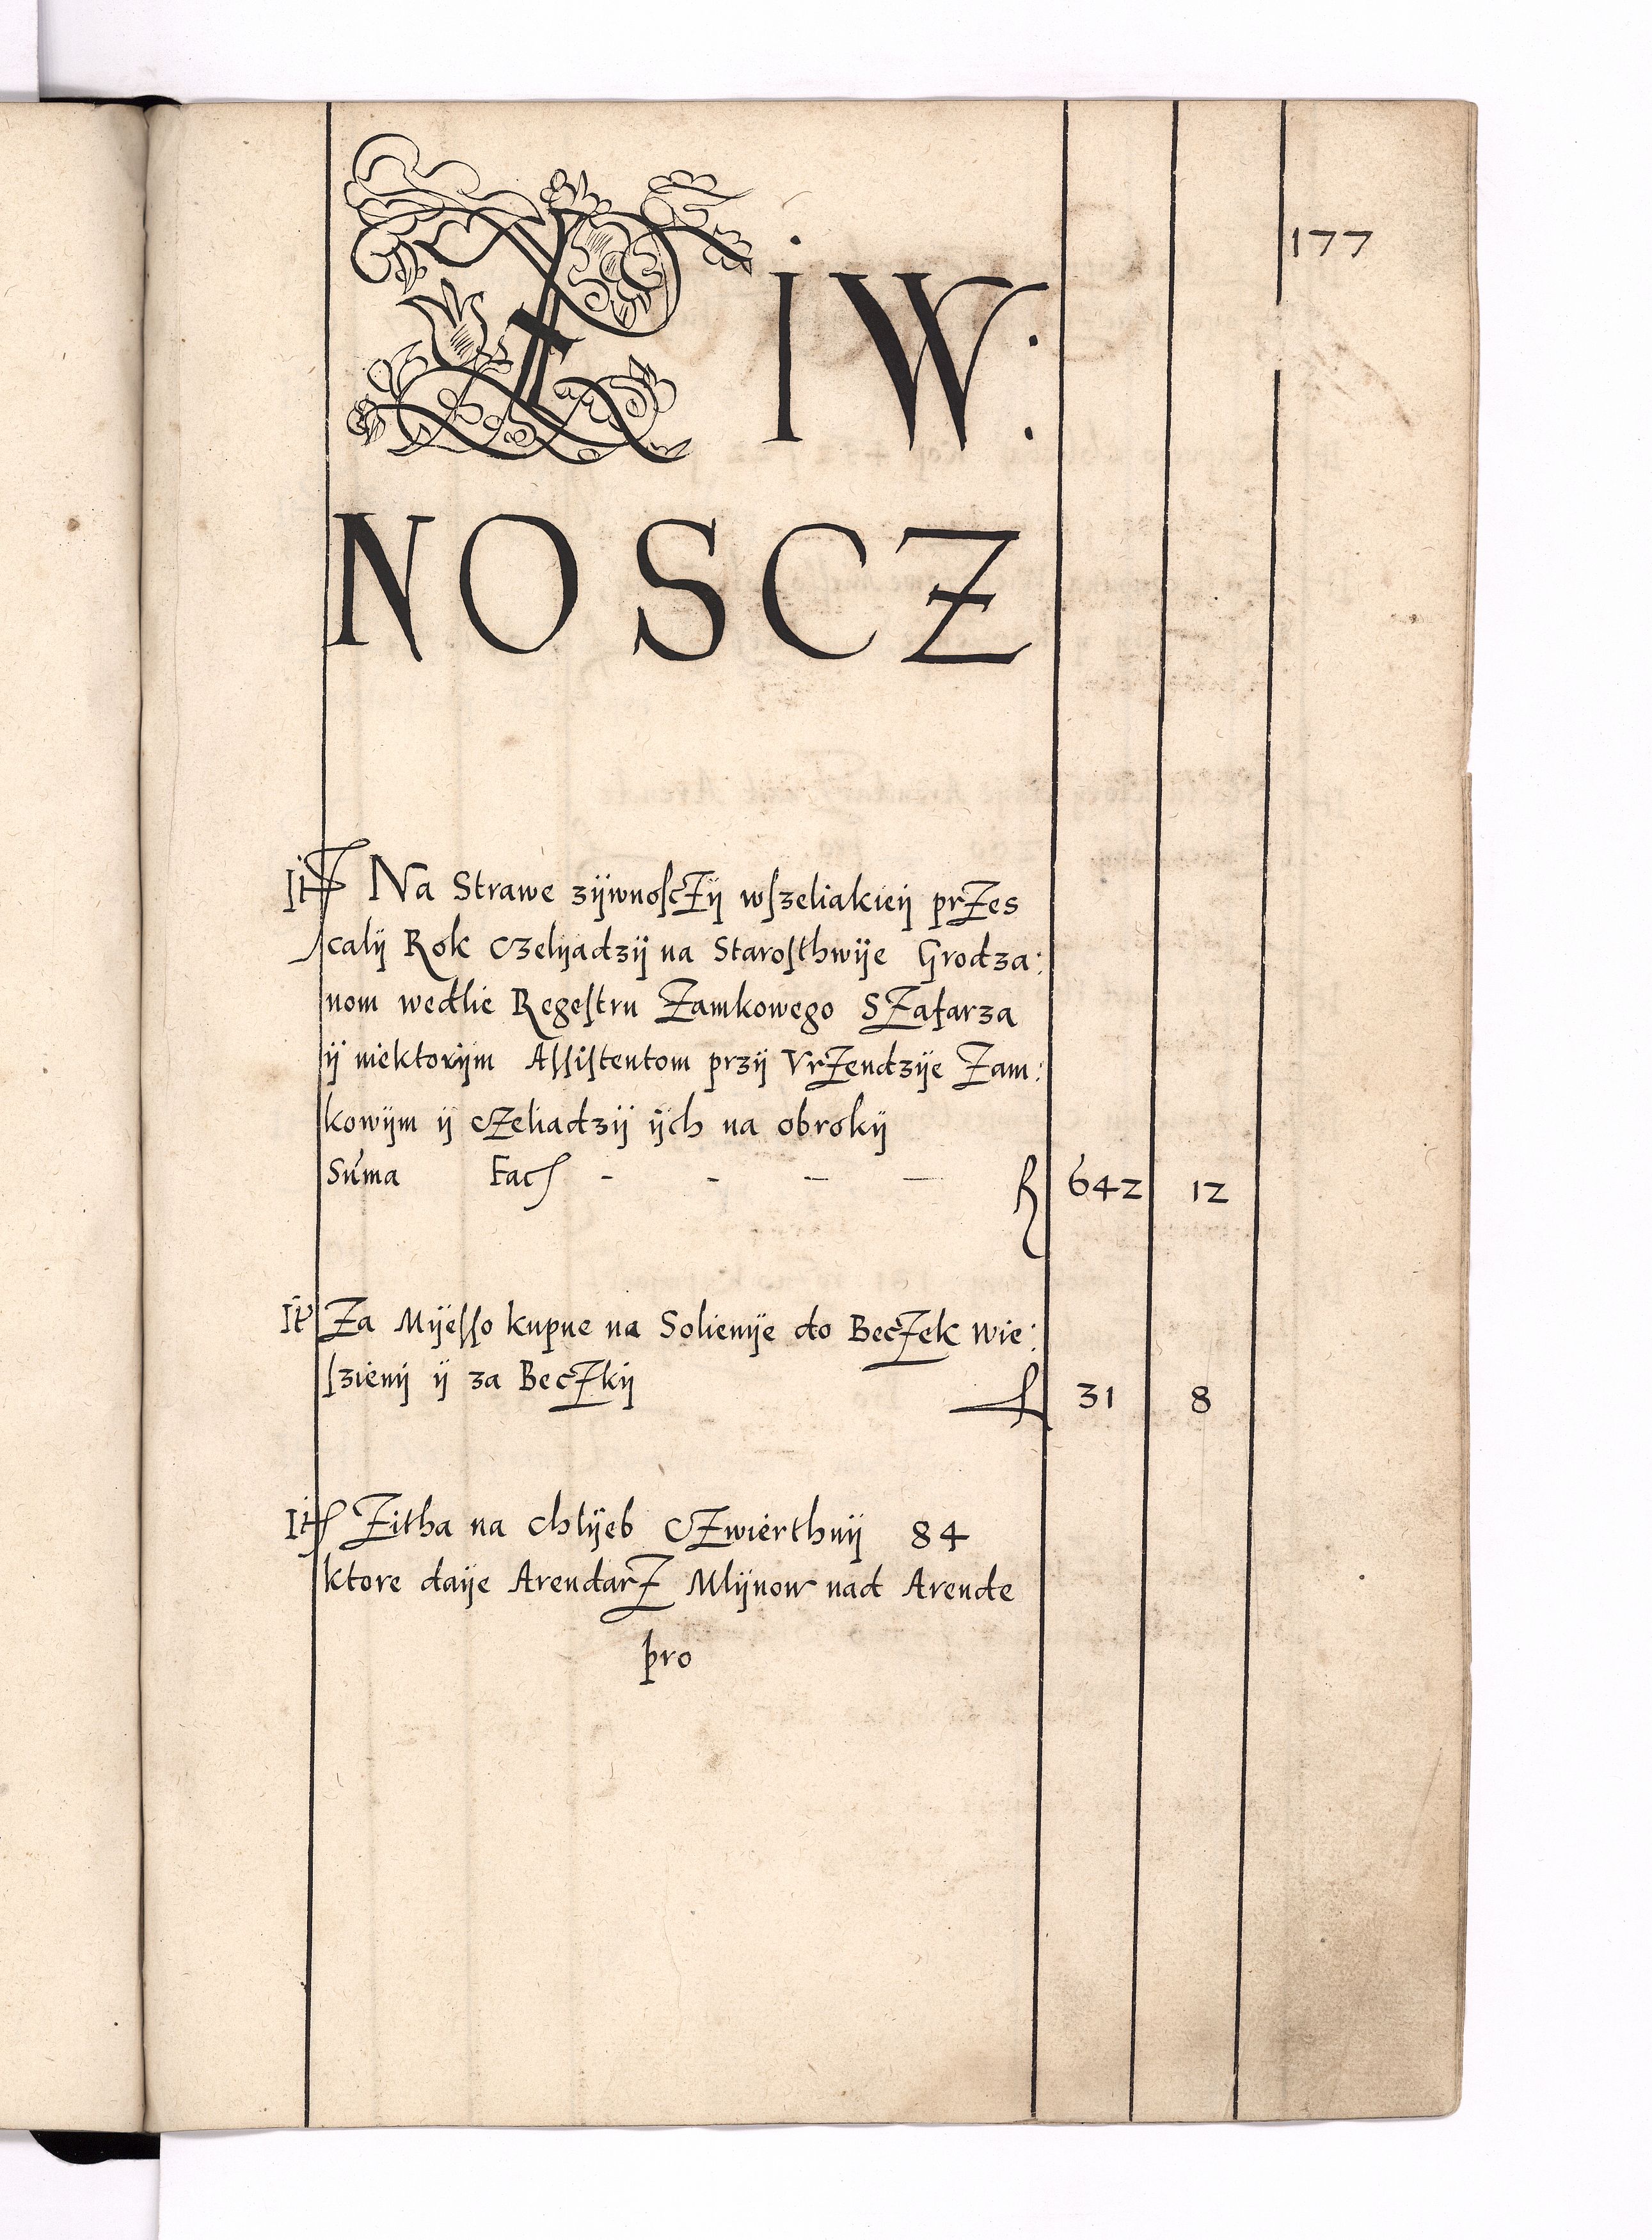 177
ZIW:
NOSCZ
It Na Strawe zÿwnoſcZÿ wſzeliakieÿ prZes
calÿ Rok Czelÿadzÿ na Staroſthwÿe Grodza:
nom wedlie Regeſtru Zamkowego SZafarza
ÿ niektorÿm Aſſiſtentom przÿ VrZendzÿe Zam:
kowÿm ÿ cZeliadzÿ ÿch na obrokÿ
Suma Fac - - - - 642 12
It Za Mÿeſſo kupne na Solienÿe do BecZek Wie:
ſzienÿ ÿ za BecZkÿ 31 8
It Zitha na chlÿeb CZwierthnÿ 84
ktore daÿe ArendarZ Mlÿnow nad Arende
pro